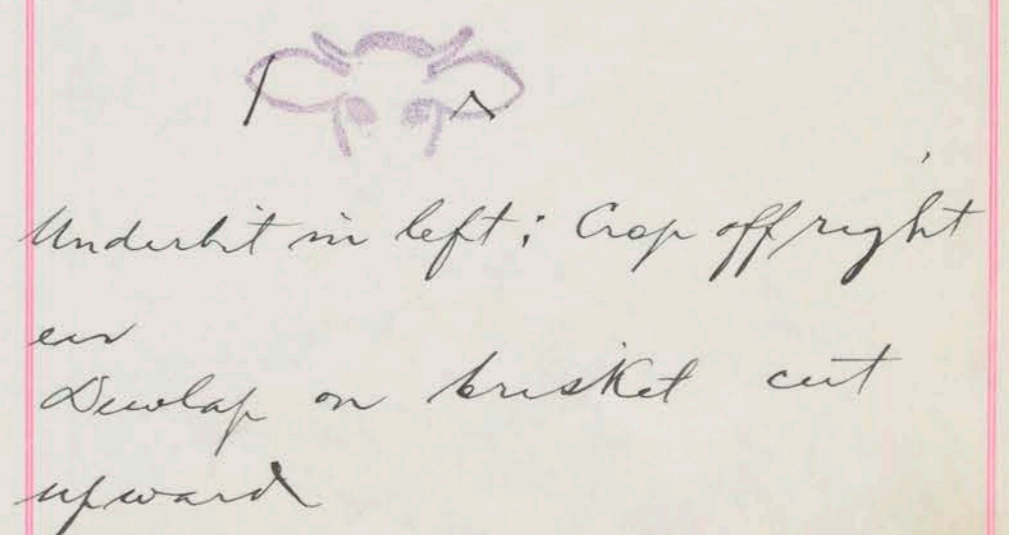 Underbit in left; Crop off right
ear
Dewlap on brisket cut
upward